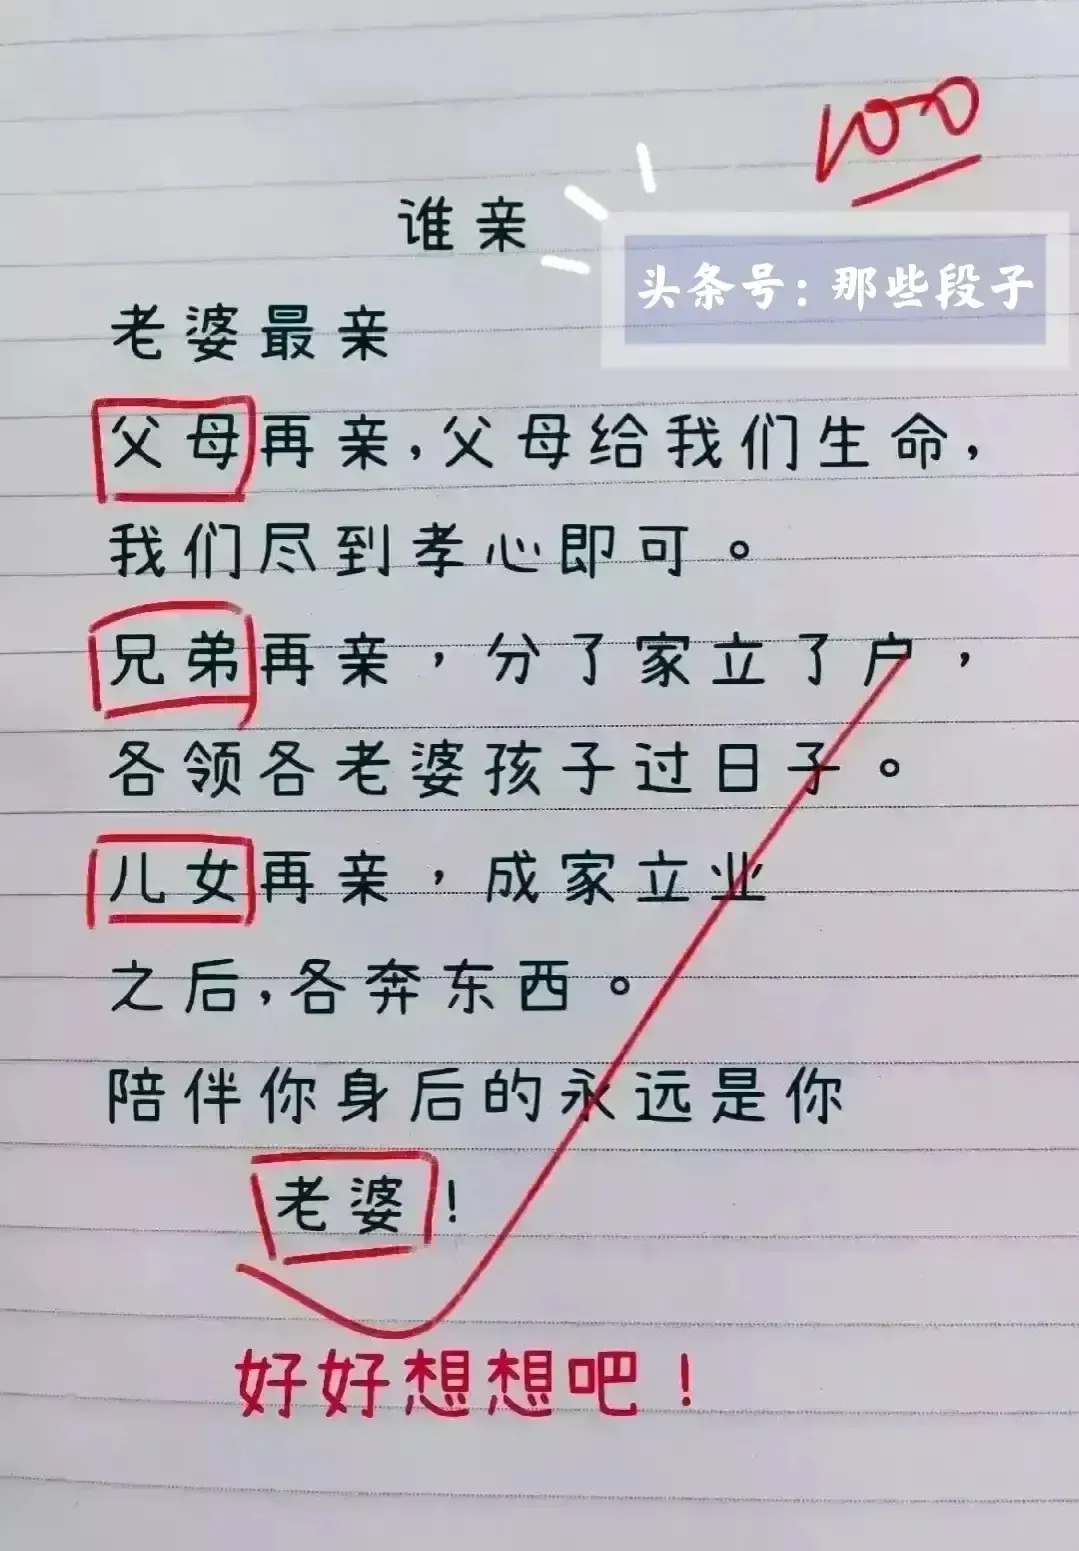 100
谁亲
头条号：那些段子
老婆最亲
父母再亲，父母给我们生命，
我们尽到孝心即可。
兄弟再亲，分了家立了户，
各领各老婆孩子过日子。
儿女再亲，成家立业
之后，各奔东西。
陪伴你身后的永远是你
老婆！
好好想想吧！